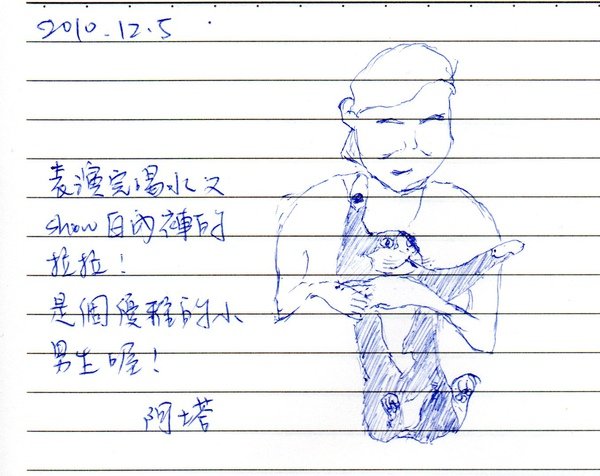 2010.12.5
表演完喝水又
show白內褲的
拉拉！
是個優雅的小
男生喔！
阿塔